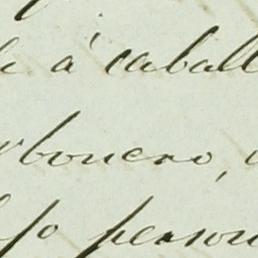 á caball
rbonero,
fo person